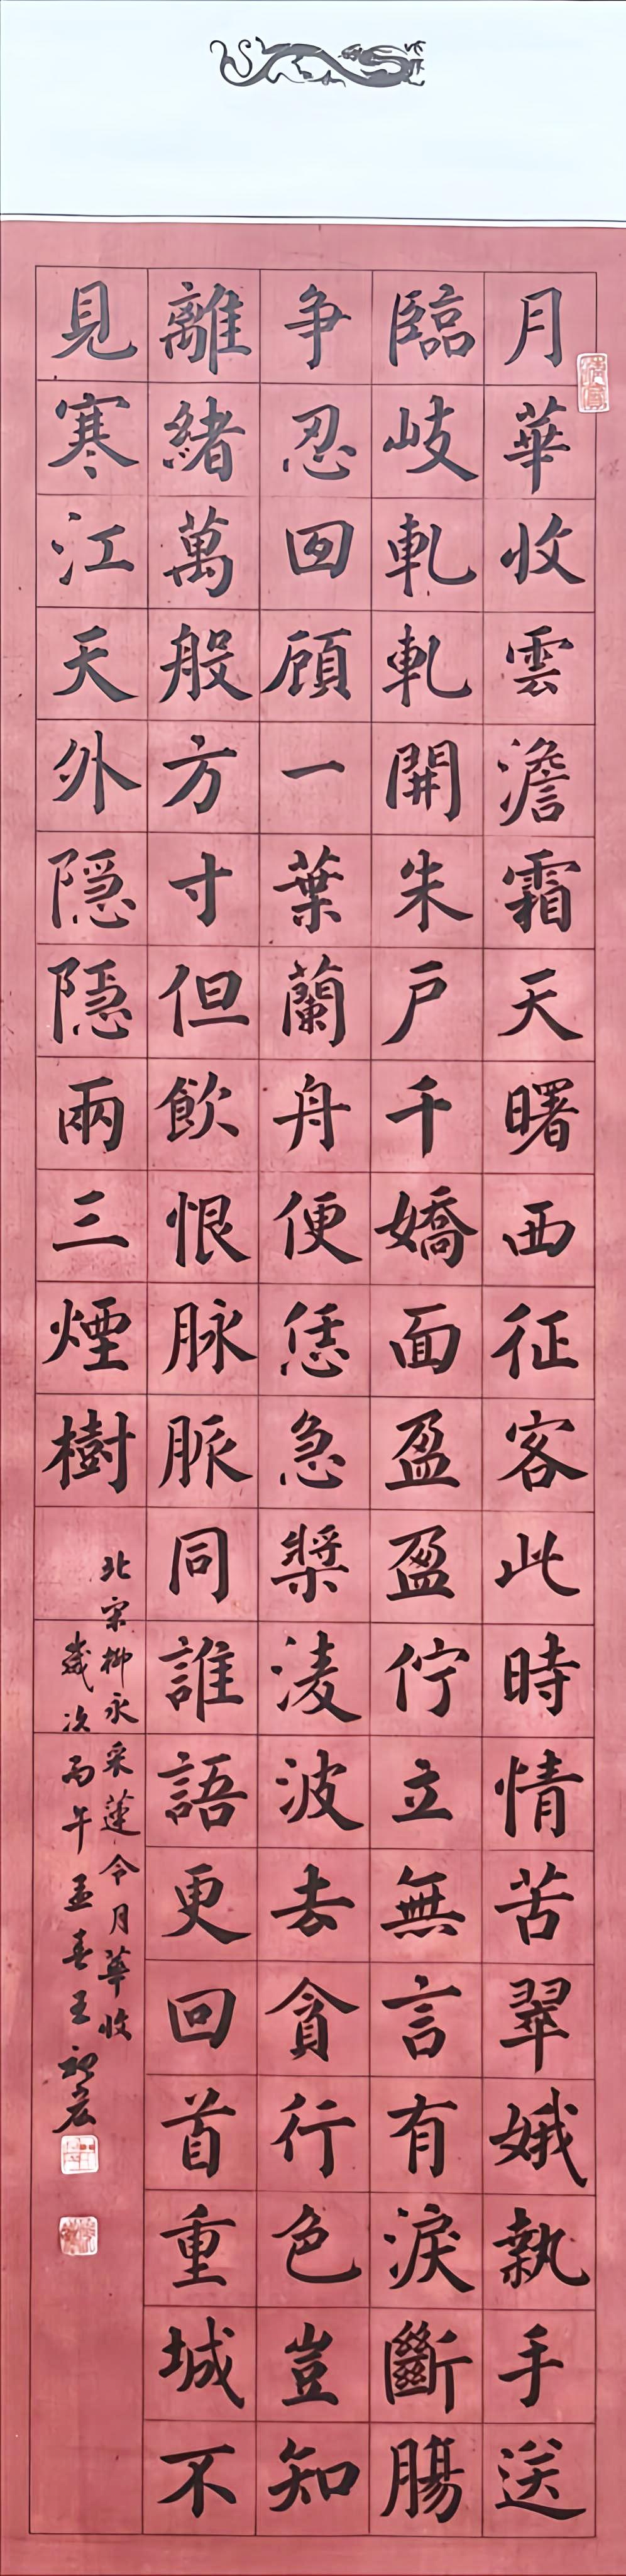 月華收雲澹霜天曙西征客此時情苦翠娥執手送
臨歧軋軋開朱戶千嬌面盈盈佇立無言有淚斷腸
争忍回顧一葉蘭舟便恁急槳淩波去貪行色豈知
離緒萬般方寸但飲恨脉脈同誰語更回首重城不
見寒江天外隱隱兩三煙樹
北宋柳永采蓮令月華收
歲次丙午孟春王